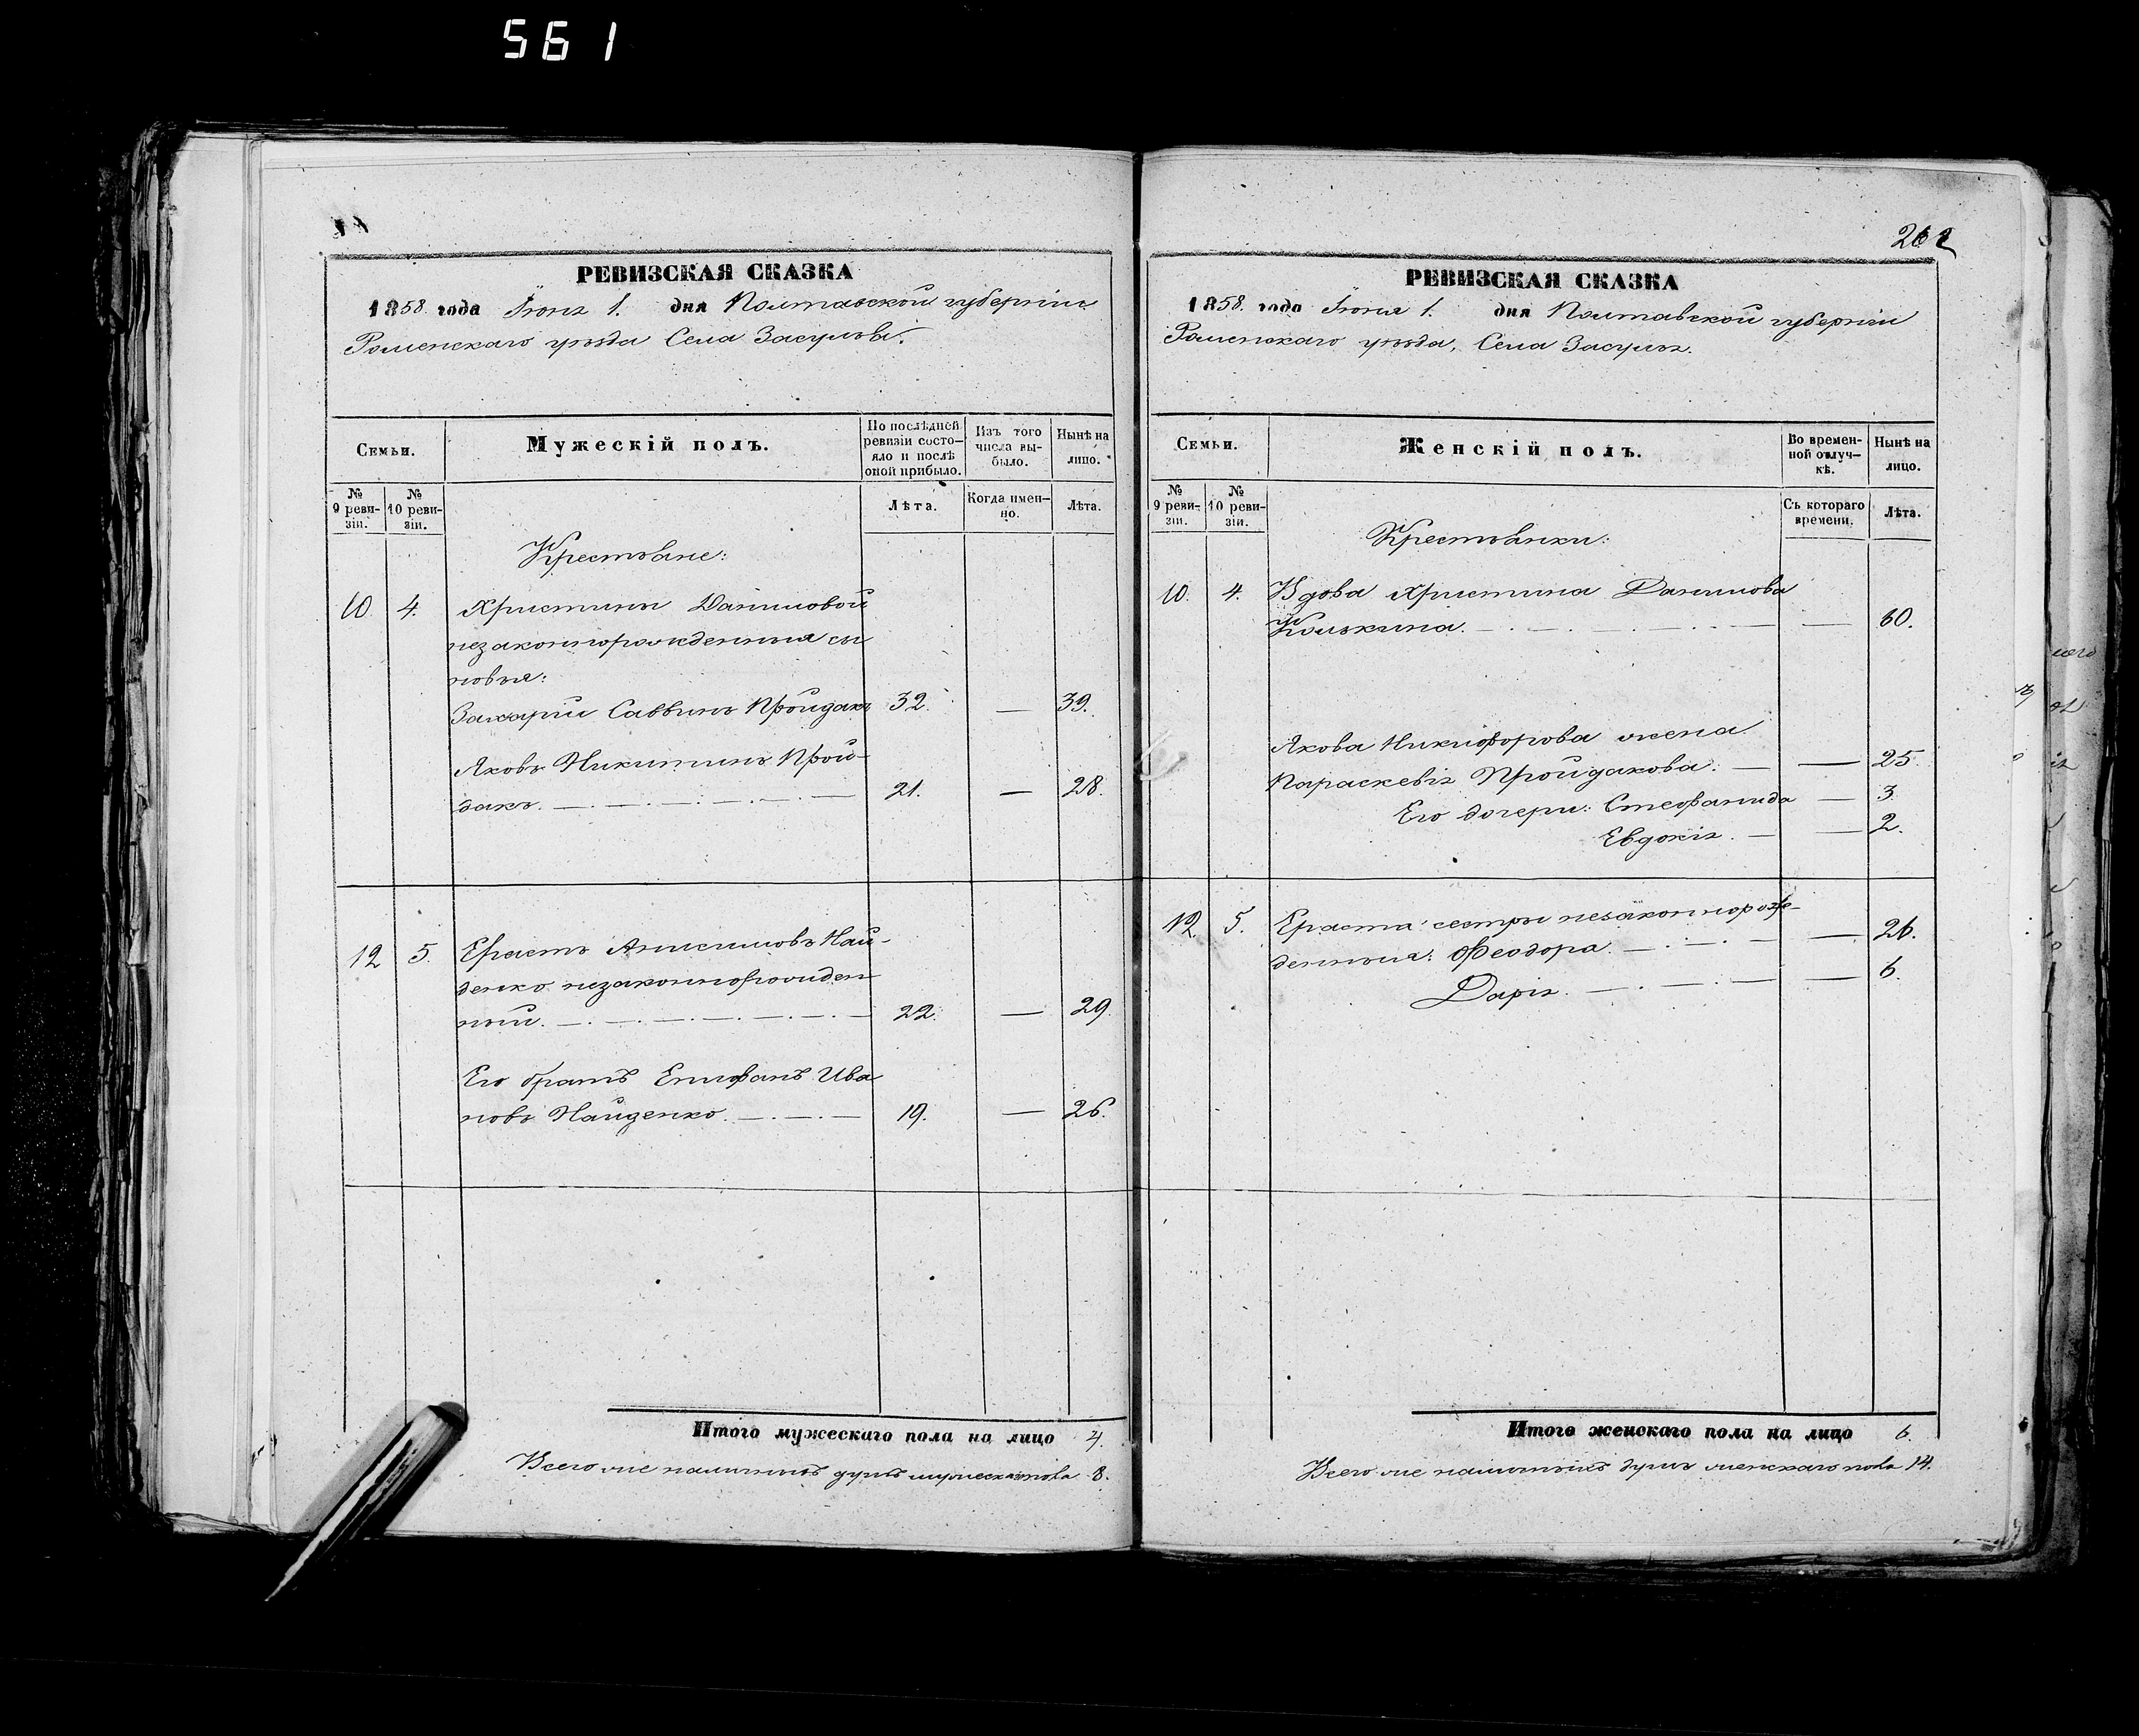 561
РЕВИЗСКАЯ СКАЗКА
1858 года Іюня 1. дня Полтавской губерніи
Роменскаго уѣзда Села Засулья.
Семьи.
Мужескій полъ.
По послѣдней ревизіи состояло и послѣ оной прибыло.
Изъ того числа выбыло.
Нынѣ на лицо.
№ 9 ревизіи.
№ 10 ревизіи.
Лѣта.
Когда именно.
Лѣта.
Крестьяне:
10. 4. Христины Даниловой
незаконнорожденныя сы
новья:
Захарій Саввинъ Пройдакъ 32. — 39.
Яковъ Никитинъ Прой-
дакъ. 21. — 28.
12 5. Ерастъ Анисимовъ Най-
денко незаконнорожден
ный. 22. — 29.
Его братъ Епифанъ Ива
новъ Найденко. 19. — 26.
Итого мужескаго пола на лицо 4.
Всего же наличныхъ душъ мужеска пола 8.
262
РЕВИЗСКАЯ СКАЗКА
1858 года Іюня 1. дня Полтавской губерніи
Роменскаго уѣзда, Села Засулья.
Семьи.
Женскій полъ.
Во временной отлучкѣ.
Нынѣ на лицо.
№ 9 ревизіи.
№ 10 ревизіи.
Съ котораго времени.
Лѣта.
Крестьянки:
10. 4. Вдова Христина Данилова
— 60.
Якова Никифорова жена
Параскевія Пройдакова. — 25.
Его дочери: Стефанида — 3.
Евдокія. — 2.
12 5. Ераста сестры незаконнорож-
денныя: Феодора. — 26.
Дарія. — 6.
Итого женскаго пола на лицо 6.
Всего же наличныхъ душъ женскаго пола 14.